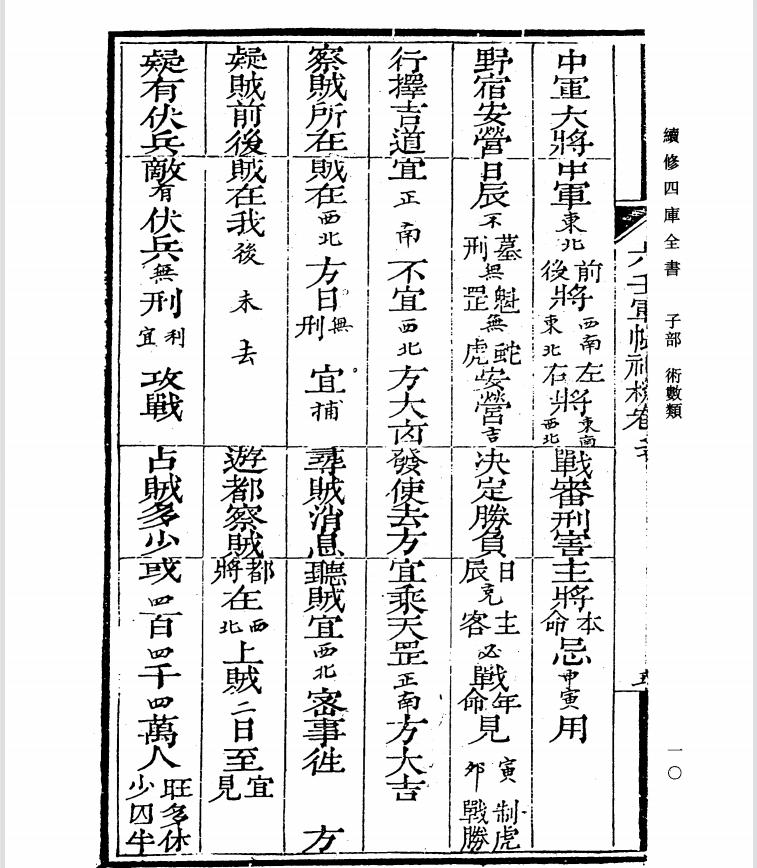 續修四庫全書 子部 術數類
一〇
六壬軍帳神機卷
中軍大將中軍東北前後將西南東北左右將東南西北戰審刑害主將本命忌申寅用
野宿安營日辰不墓刑無魁罡無蛇虎安營吉決定勝負日辰克主客必戰年命見寅卯制虎戰勝
行擇吉道宜正南不宜西北方大凶發使去方宜乘天罡正南方大吉
察賊所在賊在西北方日無刑宜捕尋賊消息聽賊宜西北密事徃方
疑賊前後賊在我後未去遊都察賊都將在西北上賊二日至宜見
疑有伏兵敵有伏兵無刑利宜攻戰占賊多少或四百四千四萬人旺多休少囚半